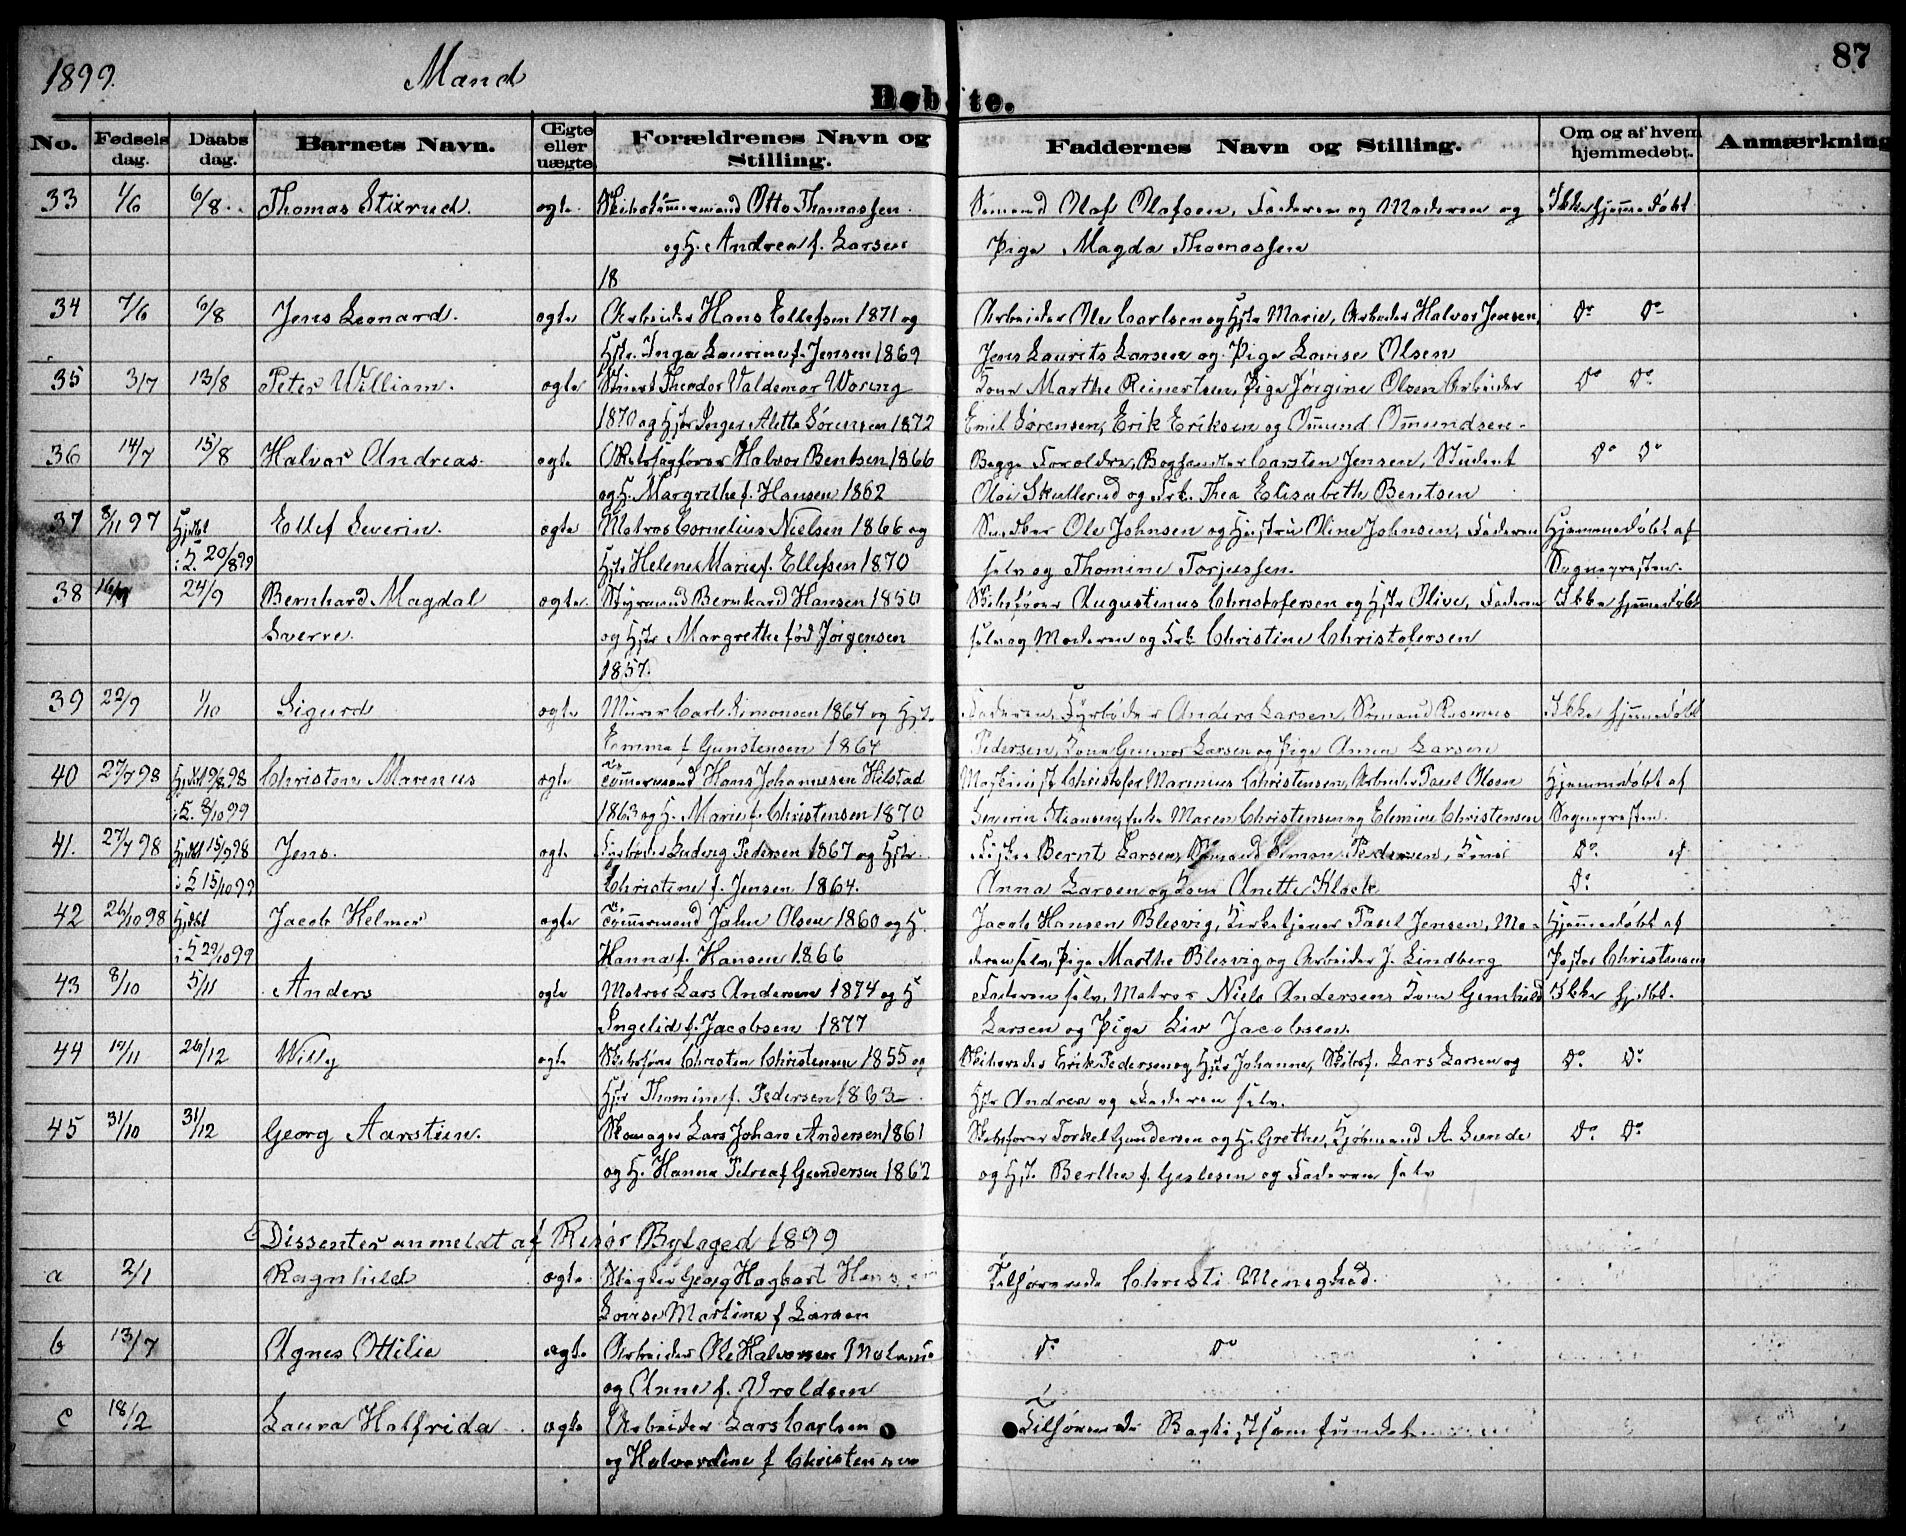 1899. Mænd 87
Døbte.
No. Fødsels dag. Daabs dag. Barnets Navn. Ægte eller uægte. Forældrenes Navn og Stilling. Faddernes Navn og Stilling. Om og af hvem hjemmedøbt. Anmærkning
33 1/6 6/8 Thomas Stixrud. ægte. Skibstømmermand Otto Thomassen Sømand Olaf Olafsen, Faderen og Moderen og Ikke hjemmedøbt
og H. Andrea f. Larsen Pige Magda Thomassen
18
34 7/6 6/8 Jens Leonard. ægte Arbeider Hans Ellefsen 1871 og Arbeider Ole Carlsen og Hstr Marie, Arbeider Halvor Jensen, Do Do
Hstr. Inga Laurine f. Jensen 1869 Jens Laurits Larsen og Pige Lovise Olsen
35 3/7 13/8 Peter William. ægte Theodor Valdemar Woring Kone Marthe Reinertsen, Pige Jørgine Olsen Arbeider Do Do
1870 og Hstr Inger Alette Sørensen 1872 Emil Sørensen, Erik Eriksen og Omund Omundsen.
36 14/7 15/8 Halvor Andreas. ægte Sagfører Halvor Bentsen 1866 Begge Forældre, Boghandler Carsten Jensen, Student Do Do
og H. Margrethe f. Hansen 1862 Olai Skullerud og Frk. Thea Elisabeth Bentsen
37 8/11 97 Hjdbt Ellef Severin. ægte Matros Cornelius Nielsen 1866 og Snedker Ole Johnsen og Hustru Oline Johnsen, Faderen Hjemmedøbt af
i K. 20/8 99 Hstr Helene Marie f. Ellefsen 1870 selv og Thomine Torjussen. Sognepresten.
38 16/7 24/9 Bernhard Magdal ægte. Styrmand Bernhard Hansen 1850 Skibsfører Augustinus Christofersen og Hstr Olive, Faderen Ikke hjemmedøbt
Sverre. og Hstr Margrethe fød Jørgensen selv og Moderen og Frk Christine Christofersen
1857.
39 22/9 1/10 Sigurd ægte Murer Carl Simonsen 1864 og Hstr. Faderen, Fyrbøder Anders Larsen, Sømand Rasmus Ikke hjemmedøbt
Emma f. Gunstensen 1864 Pedersen, Kone Gunvor Larsen og Pige Anna Larsen
40 27/7 98 Hjdbt 19/8 98 Christen Marenus ægte Tømmermand Hans Johannesen Helstad Maskinist Christofer Marenius Christensen, Arbeider Paul Olsen Hjemmedøbt af
i K. 8/10 99 1863 og H. Marie f. Christensen 1870 Severin Maren Christensen og Elemine Christensen Sognepresten.
41. 27/7 98 Hjdbt 15/9 98 Jens. ægte Ludvig Pedersen 1867 og Hstr. Fisker Bernt Larsen, Sømand Simon Pedersen, Kone Do af
i K 15/10 99 Christine f. Jensen 1864. Anna Larsen og Kone Anette Klock Do
42 26/10 98 Hjdbt Jacob Helmer ægte Tømmermand John Olsen 1860 og H. Jacob Hansen Blesvig, Kirketjener Paul Jensen, Mo- Hjemmedøbt af
i K 29/10 99 Hanna f. Hansen 1866 deren selv, Pige Marthe Blesvig og Arbeider J. Lindberg Pastor Christensen
43 8/10 5/11 Anders ægte Matros Lars Andersen 1874 og H Faderen selv, Matros Niels Andersen, Kone Gunhild Ikke hjdbt.
Ingelid f. Jacobsen 1877 Larsen og Pige Liv Jacobsen.
44 19/11 26/12 Willy ægte Skibsfører Christen Christensen 1855 og Skibsreder Erik Pedersen og Hstr Johanne, Skibsf. Lars Larsen og Do Do
Hstr Thomine f. Pedersen 1863 Hstr Andrea og Faderen selv.
45 31/10 31/12 Georg Aarstein. ægte Skomager Lars Johan Andersen 1861 Skibsfører Torkel Gundersen og H. Grethe, Kjøbmand A. Lunde Do Do
og H. Hanna Petrea f Gundersen 1862 og Hstr. Berthe f. og Faderen selv
Dissenter anmeldt af Risør Byfoged 1899
a 2/1 Ragnhild ægte Georg Hagbart Tilhørende Christi Menighed.
Lovise Martine f Larsen
b 13/7 Agnes Ottilie ægte Arbeider Ole Halvorsen Do Do
og Anne f. Vroldsen
c 18/2 Laura Halfrida ægte Arbeider Lars Carlsen Tilhørende Baptistsamfundet
og Halvordine f Christensen